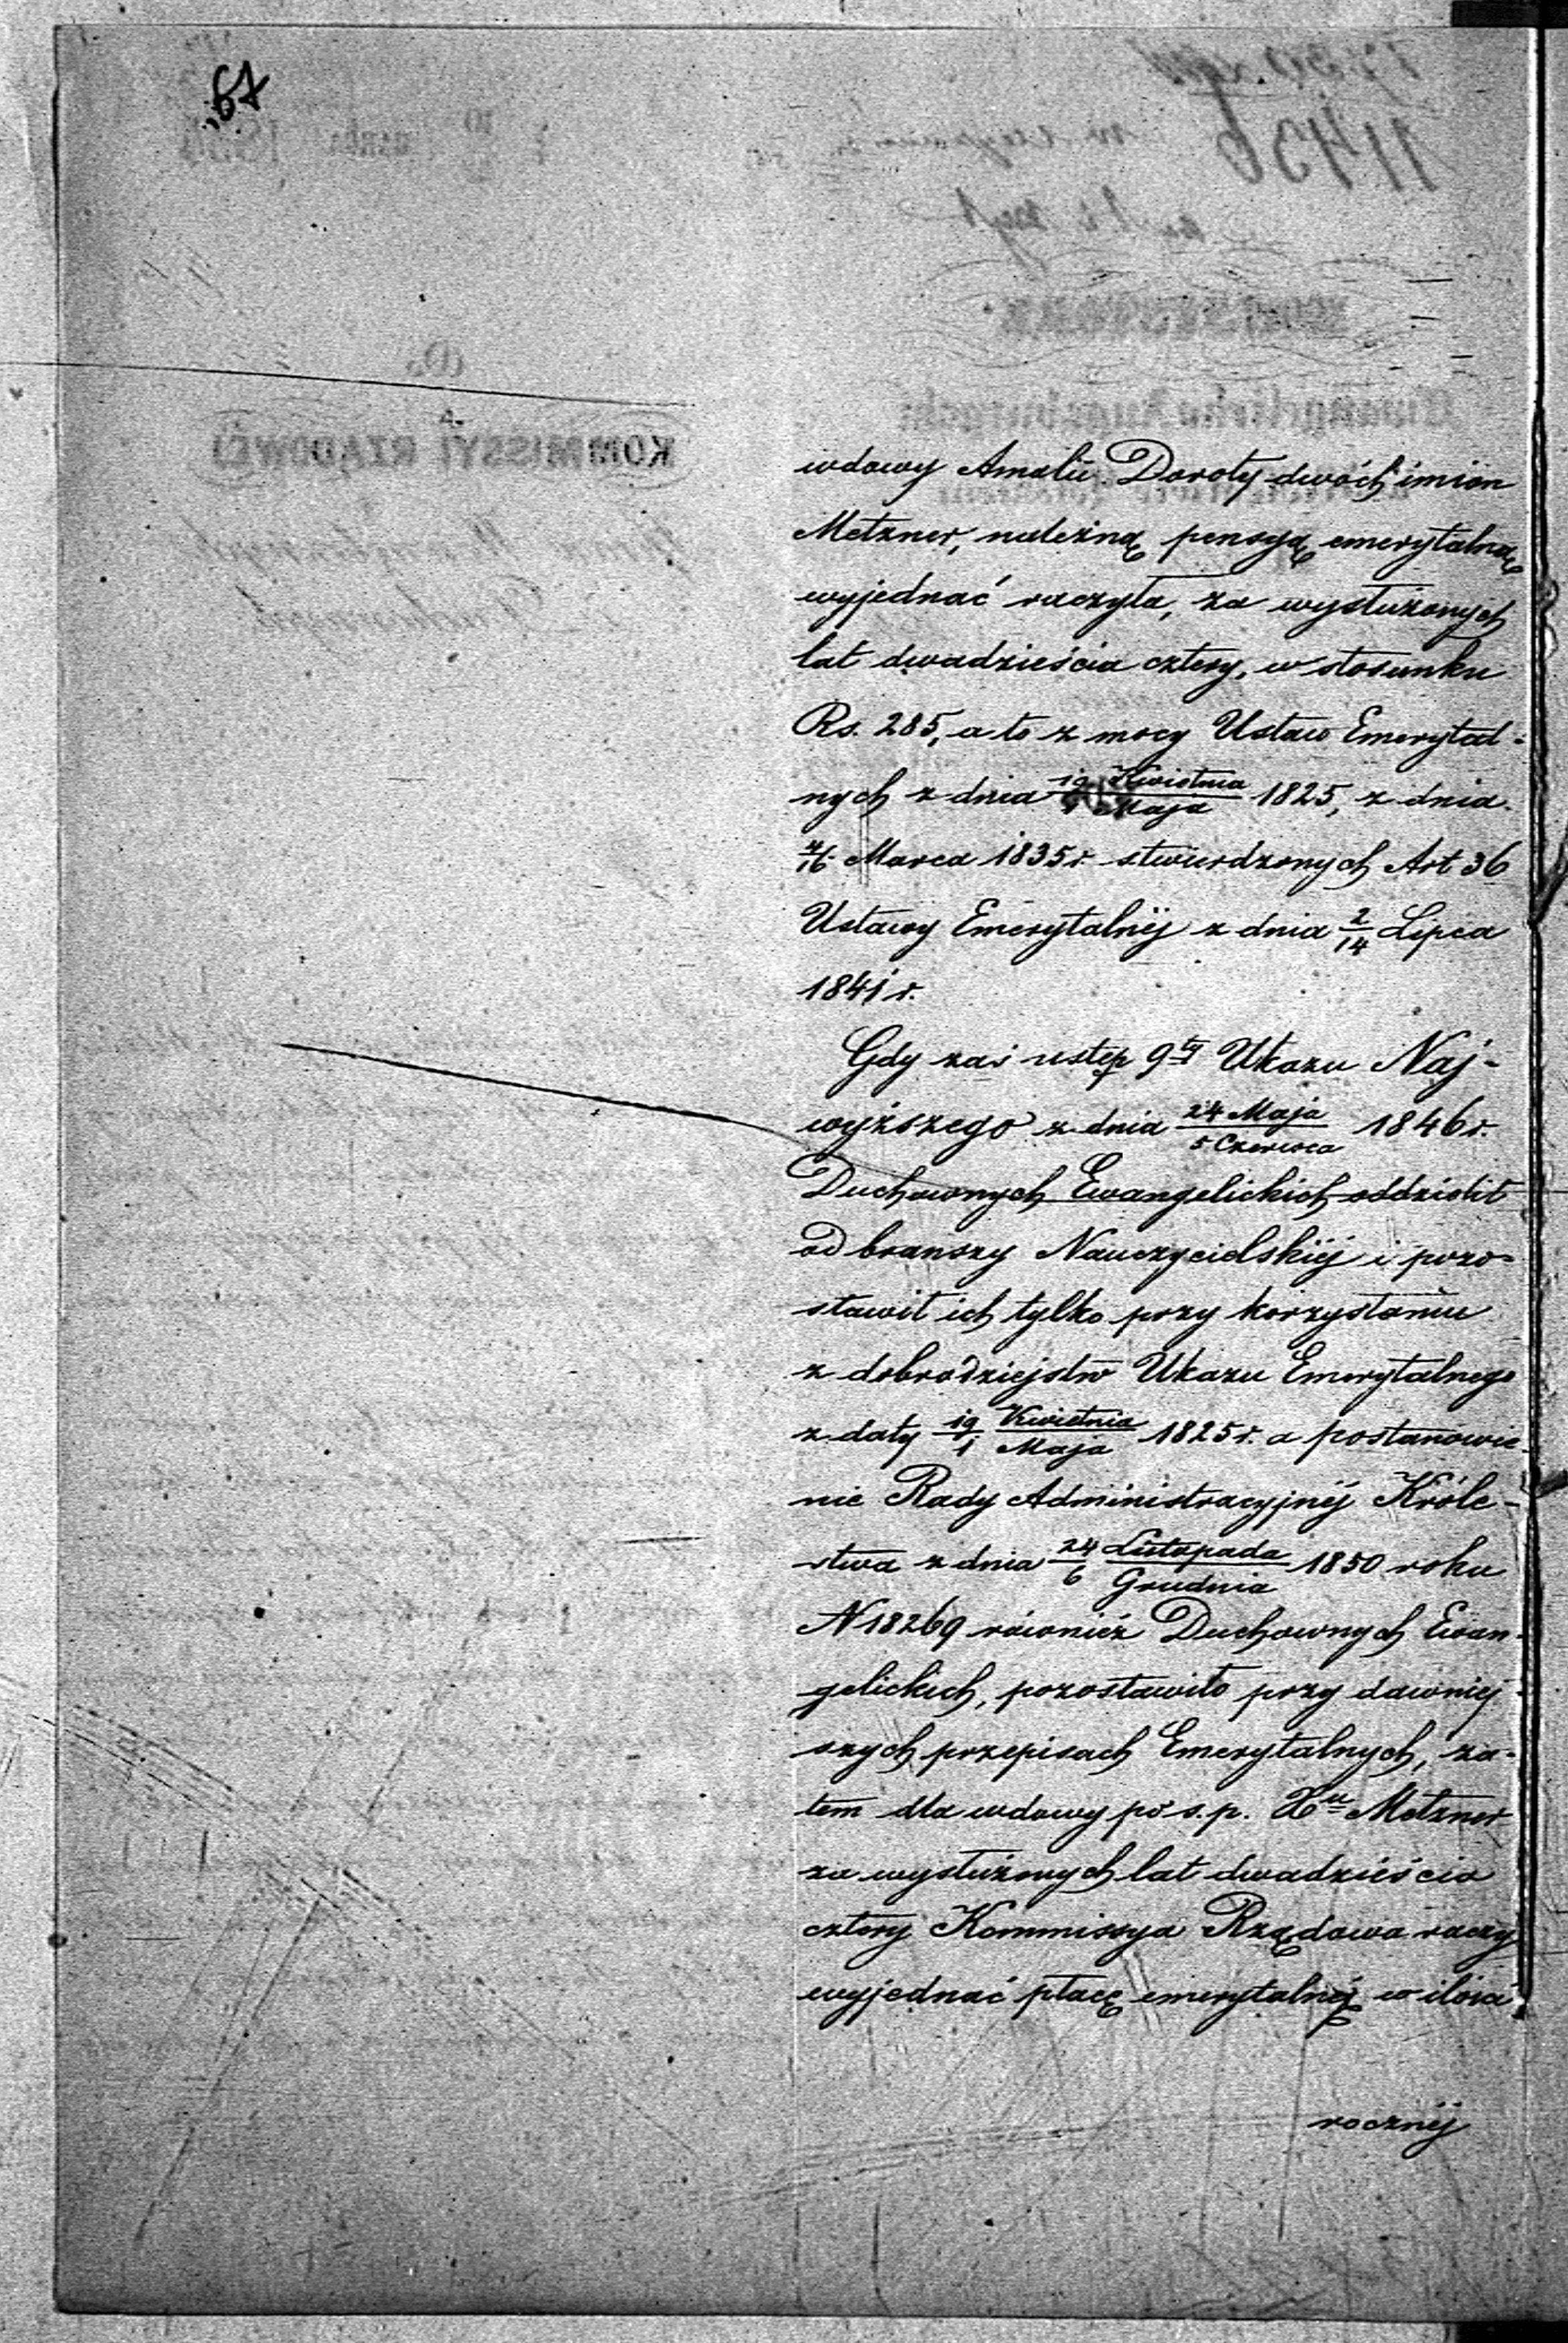 67
wdowy Amalii Doroty dwóch imion
Metzner, należną pensyą emerytalną
wyjednać raczyła, za wysłużonych
lat dwadzieścia cztery, w stosunku
Rs. 285, a to z mocy Ustaw Emerytal-
nych z dnia 19 Kwietnia / 1 Maja 1825, z dnia
4/16 Marca 1835 r. stwierdzonych Art 36
Ustawy Emerytalnéj z dnia 2/14 Lipca
1841 r.
Gdy zaś ustęp 9ty Ukazu Naj-
wyższego z dnia 24 Maja / 5 Czerwca 1846 r.
Duchownych Ewangelickich oddzielił
od branszy Nauczycielskiéj i pozo-
stawił ich tylko przy korzystaniu
z dobrodziejstw Ukazu Emerytalnego
z daty 19 Kwietnia / 1 Maja 1825 r. a postanowie-
nie Rady Administracyjnéj Króle-
stwa z dnia 24 Listopada / 6 Grudnia 1850 roku
N 18269 również Duchownych Ewan-
gelickich, pozostawiło przy dawniej
szych przepisach Emerytalnych, za-
tem dla wdowy po ś.p. Xu Metzner
za wysłużonych lat dwadzieścia
cztery Kommissya Rządowa raczy
wyjednać płacę emerytalną w ilości
rocznéj